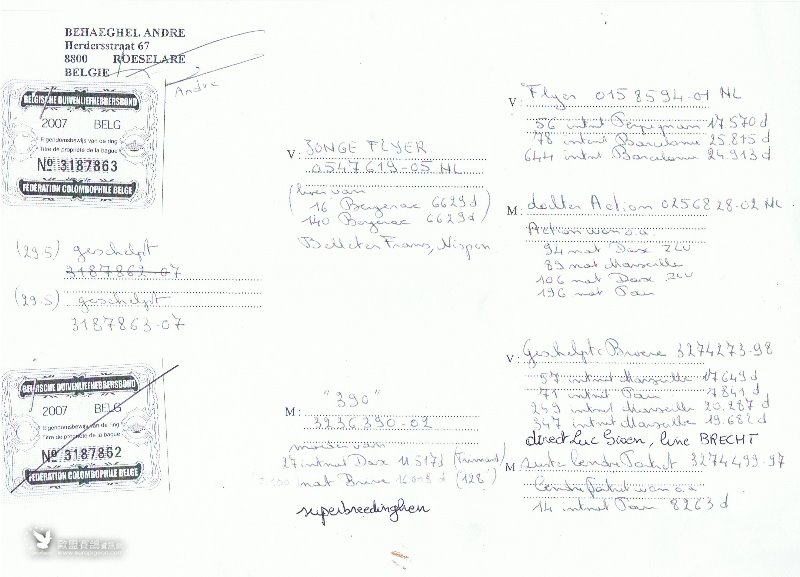 BEHAEGHEL ANDRE
Herdersstraat 67
8800 ROESELARE
BELGIE
Andre
BELGISCHE DUIVENLIEFHEBBERSBOND
2007 BELG
Eigendomsbewijs van de ring
Titre de propriété de la bague
No 3187863
FÉDÉRATION COLOMBOPHILE BELGE
(29.5) geschelpt
3187862-07
(29.5) geschelpt
3187863-07
BELGISCHE DUIVENLIEFHEBBERSBOND
2007 BELG
Eigendomsbewijs van de ring
Titre de propriété de la bague
No 3187862
FÉDÉRATION COLOMBOPHILE BELGE
V: JONGE FLYER
0547619-05 NL
(broer van
16 Bergerac 6629 d
140 Bergerac 6629 d)
Belleter Frans, Nispen
M: "390"
3236390-02
moeder van
27 intnat Dax 11517 d
nat Brive (128)
superbreedinghen
V: Flyer 0158594-01 NL
56 intnt Perpignan 17570 d
78 intnt Barcelona 25815 d
644 intnt Barcelona 24913 d
M: dochter Action 0256828-02 NL
Action van o.a
94 nat Dax ZLU
89 nat Marseille
106 nat Dax ZLU
196 nat Pau
V: Geschelpt Broere 3274273-98
57 intnat Marseille 17649 d
71 intnat Pau 7841 d
249 intnt Marseille 20.287 d
347 intnt Marseille 19.682 d
direct Luc Sioen, line BRECHT
M 3274499-97
van o.a
14 intnat Pau 8263 d
歐盟賽鴿資訊網
www.europigeon.com